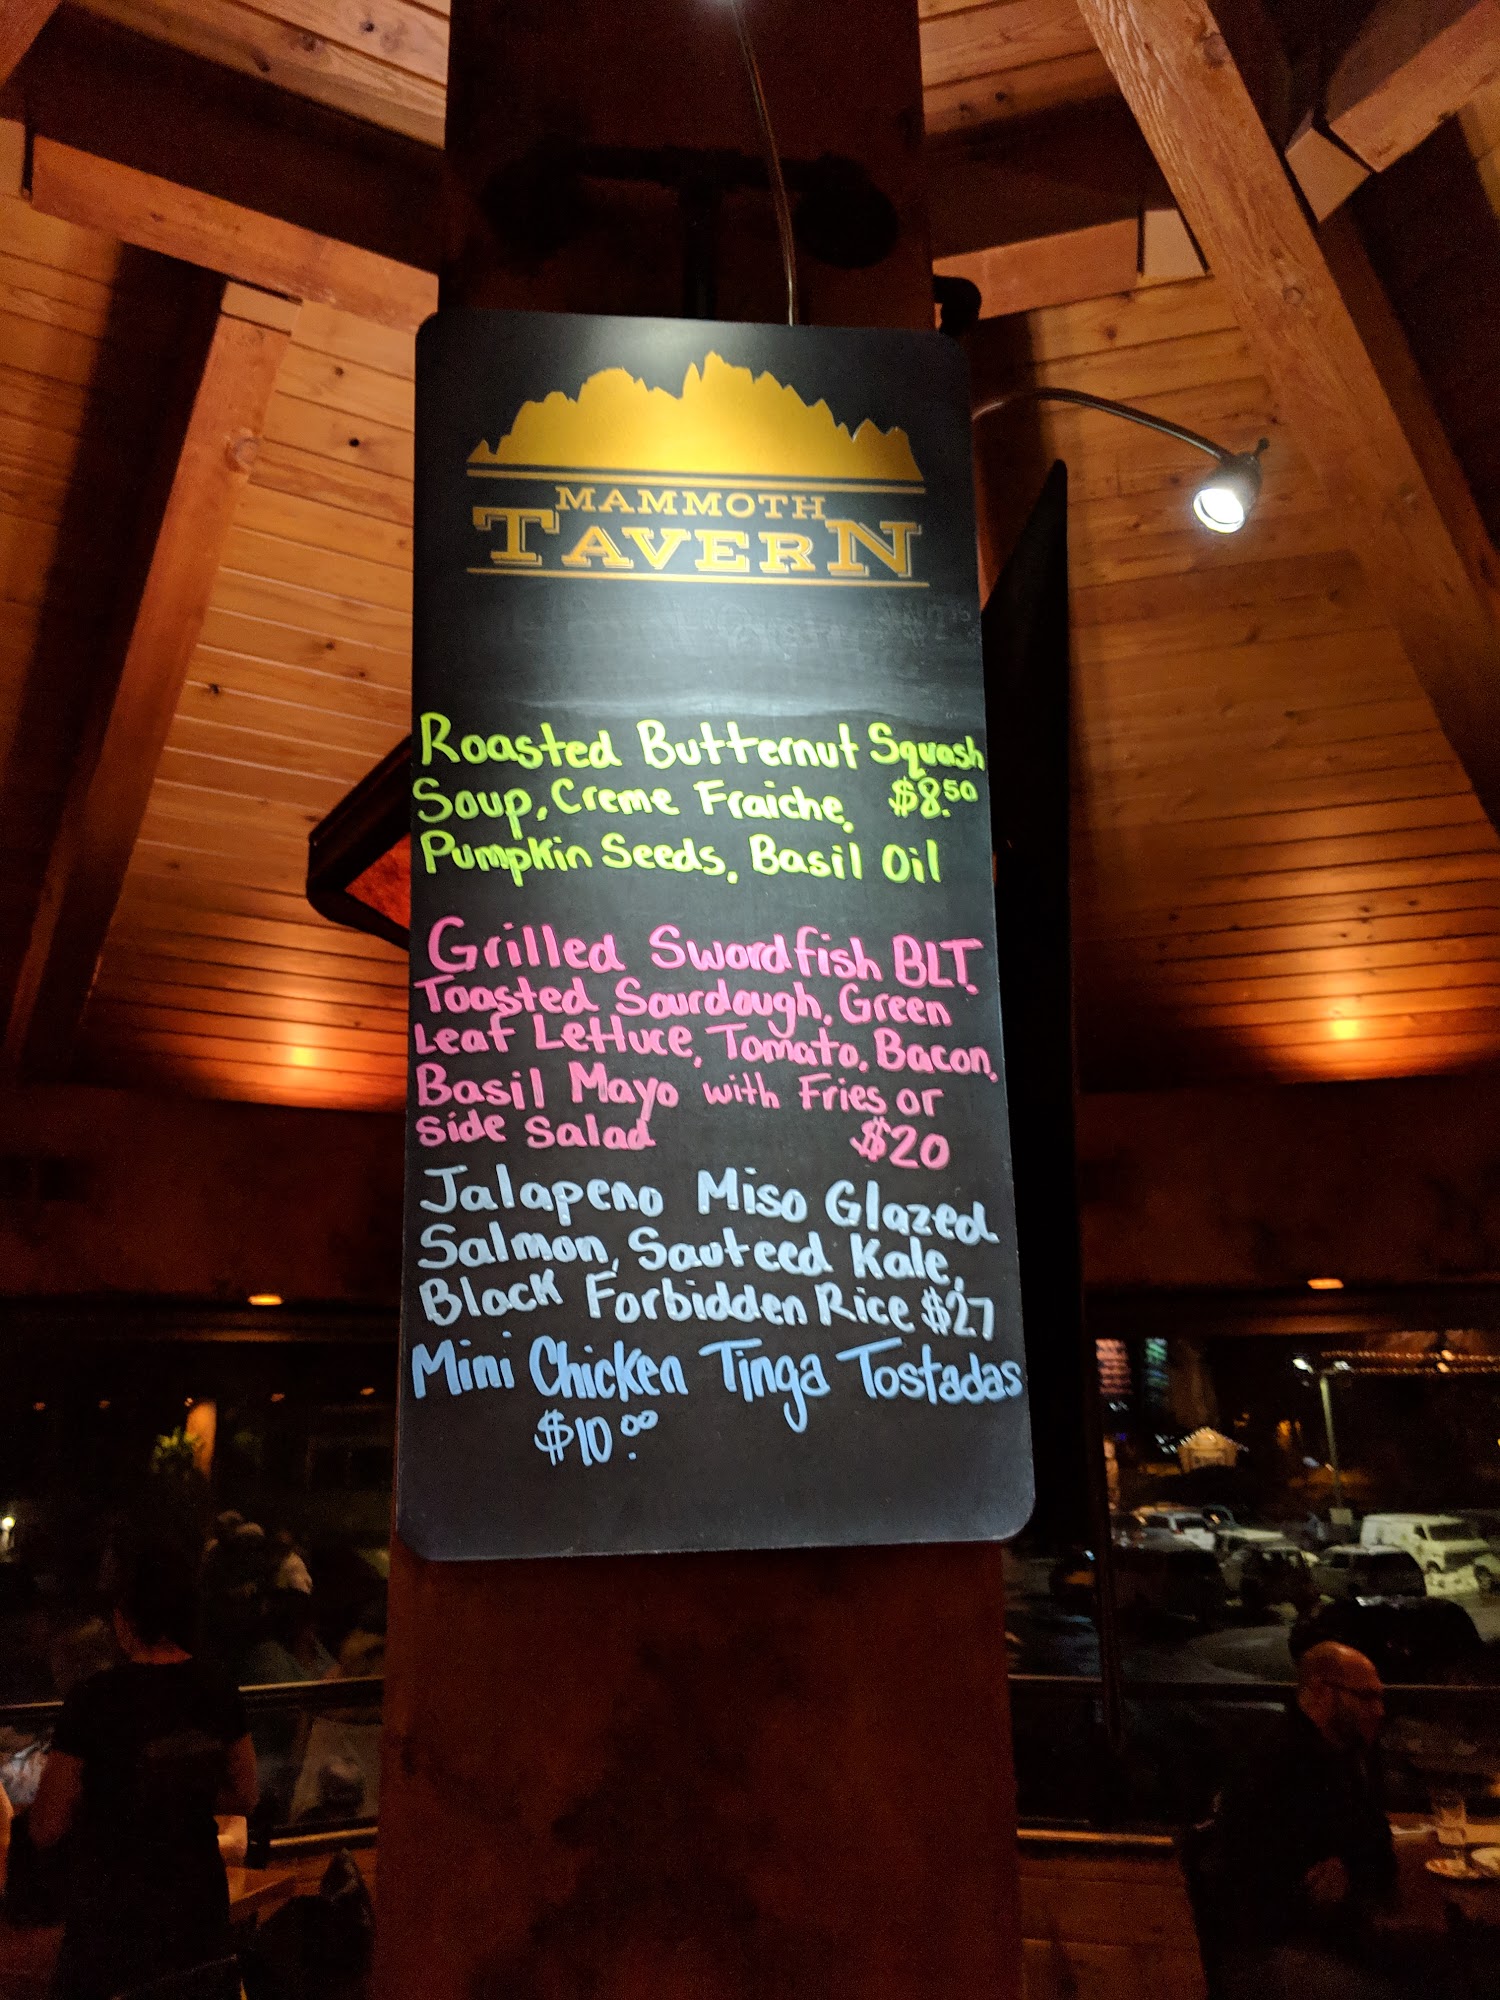 MAMMOTH
TAVERN
Roasted Butternut Squash
Soup, Creme Fraiche, $8.50
Pumpkin Seeds, Basil Oil
Grilled Swordfish BLT
Toasted Sourdough, Green
Leaf Lettuce, Tomato, Bacon,
Basil Mayo with Fries or
side salad $20
Jalapeno Miso Glazed
Salmon, Sauteed Kale,
Black Forbidden Rice $27
Mini Chicken Tinga Tostadas
$10.00